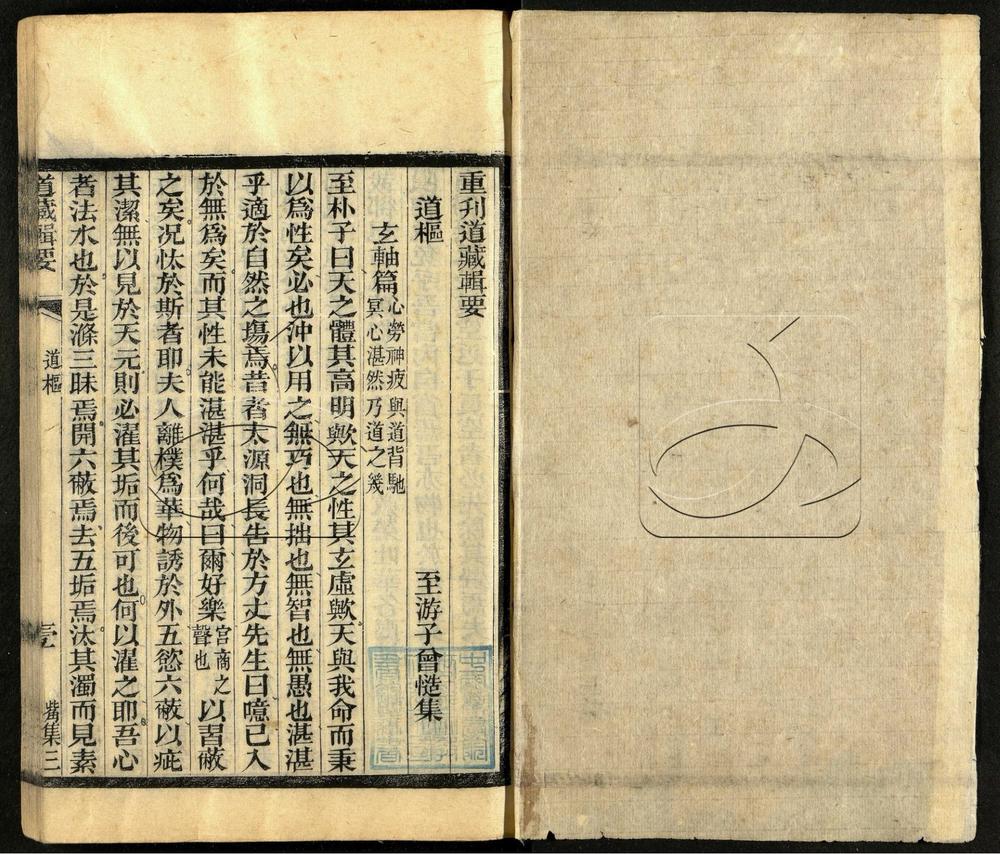 重刊道藏輯要
道樞
至游子曾慥集
玄軸篇
心勞神疲與道背馳
冥心湛然乃道之幾
至朴子曰天之體其高明歟天之性其玄虛歟天與我命而秉
以爲性矣必也沖以用之無巧也無拙也無智也無愚也湛湛
乎適於自然之塲焉昔者太源洞長告於方丈先生曰噫已入
於無爲矣而其性未能湛湛乎何哉曰爾好樂宮商之聲也以習蔽
之矣况忲於斯者耶夫人離樸爲華物誘於外五慾六蔽以疵
其潔無以見於天元則必濯其垢而後可也何以濯之耶吾心
者法水也於是滌三昧焉開六蔽焉去五垢焉汰其濁而見素
道藏輯要
道樞
觜集三